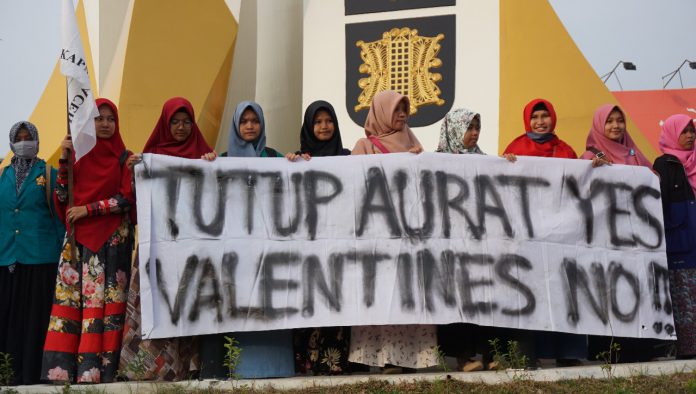 KAP
ACEH
TUTUP AURAT YES
VALENTINES NO!!